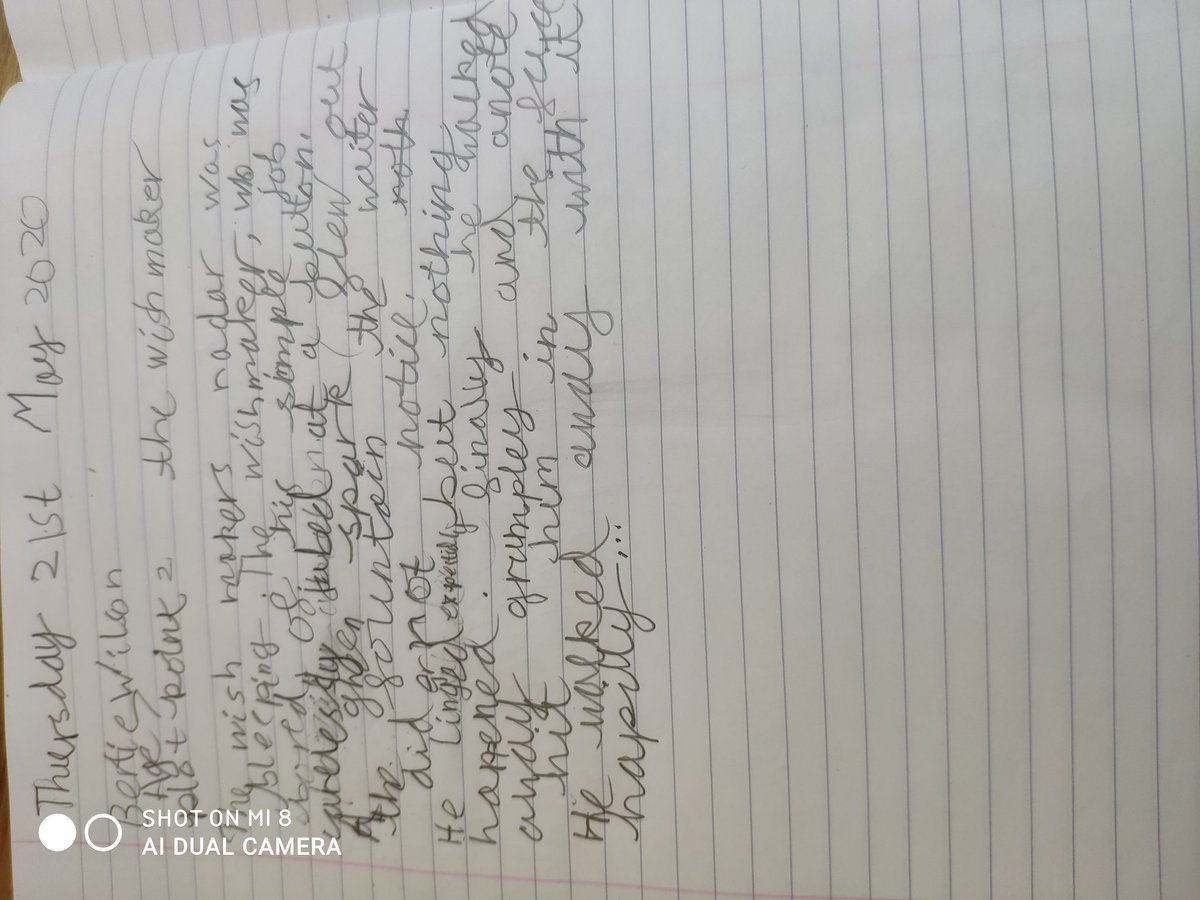 Thursday 21st May 2020
Bertie Wilson
Age
plot point 2 the wish maker
The wish makers radar was
bleeping. The wish maker, who was
bored of his simple job
jabbed at a button.
A green spark (flew out
the fountain the waiter
did not notice.
He lingered but nothing
hapened. finally he walked
away grumpley and anote
hit him in the face
He walked away with it
hapilly...
SHOT ON MI 8
AI DUAL CAMERA